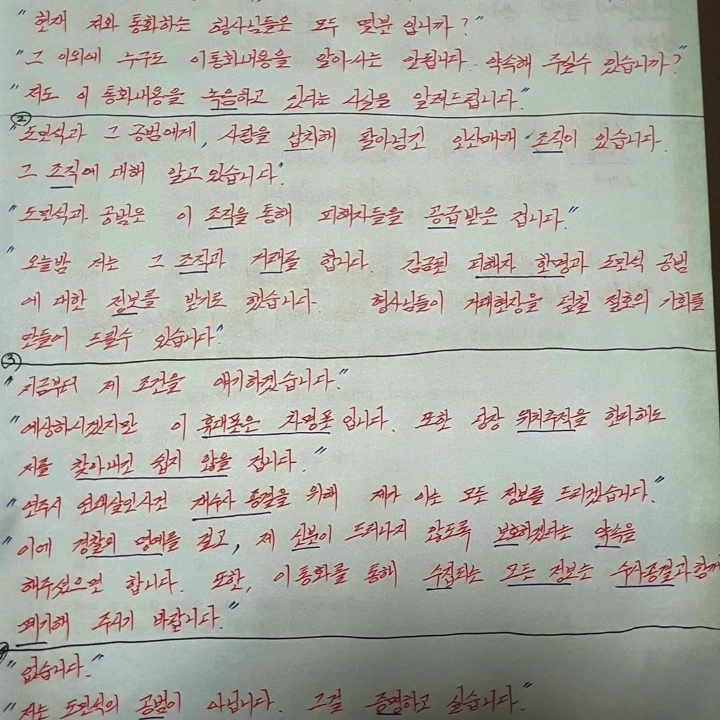 "현재 저와 통화하는 형사님들은 모두 몇분 입니까?"
"그 이외에 누구도 이통화내용을 알아서는 안됩니다. 약속해 주실수 있습니까?"
"저도 이 통화내용을 녹음하고 있다는 사실을 알려드립니다."
②
"도민석과 그 공범에게, 사람을 납치해 팔아넘긴 오산매개 조직이 있습니다.
그 조직에 대해 알고있습니다."
"도민석과 공범은 이 조직을 통해 피해자들을 공급받은 겁니다."
"오늘밤 저는 그 조직과 거래를 합니다. 감금된 피해자 한명과 도민석 공범
에 대한 정보를 받기로 했습니다. 형사님들이 거래현장을 덮칠 절호의 기회를
만들어 드릴수 있습니다"
③
"지금부터 제 조건을 얘기하겠습니다."
"예상하시겠지만 이 휴대폰은 차명폰 입니다. 또한 당장 위치추적을 한다해도
저를 찾아내긴 쉽지 않을 겁니다."
"연주시 연쇄살인사건 재수사 종결을 위해 제가 아는 모든 정보를 드리겠습니다."
"이에 경찰의 명예를 걸고, 제 신분이 드러나지 않도록 보호하겠다는 약속을
해주셨으면 합니다. 또한, 이 통화를 통해 수집되는 모든 정보는 수사종결과 함께
폐기해 주시기 바랍니다."
"없습니다."
"저는 도민석의 공범이 아닙니다. 그걸 증명하고 싶습니다."